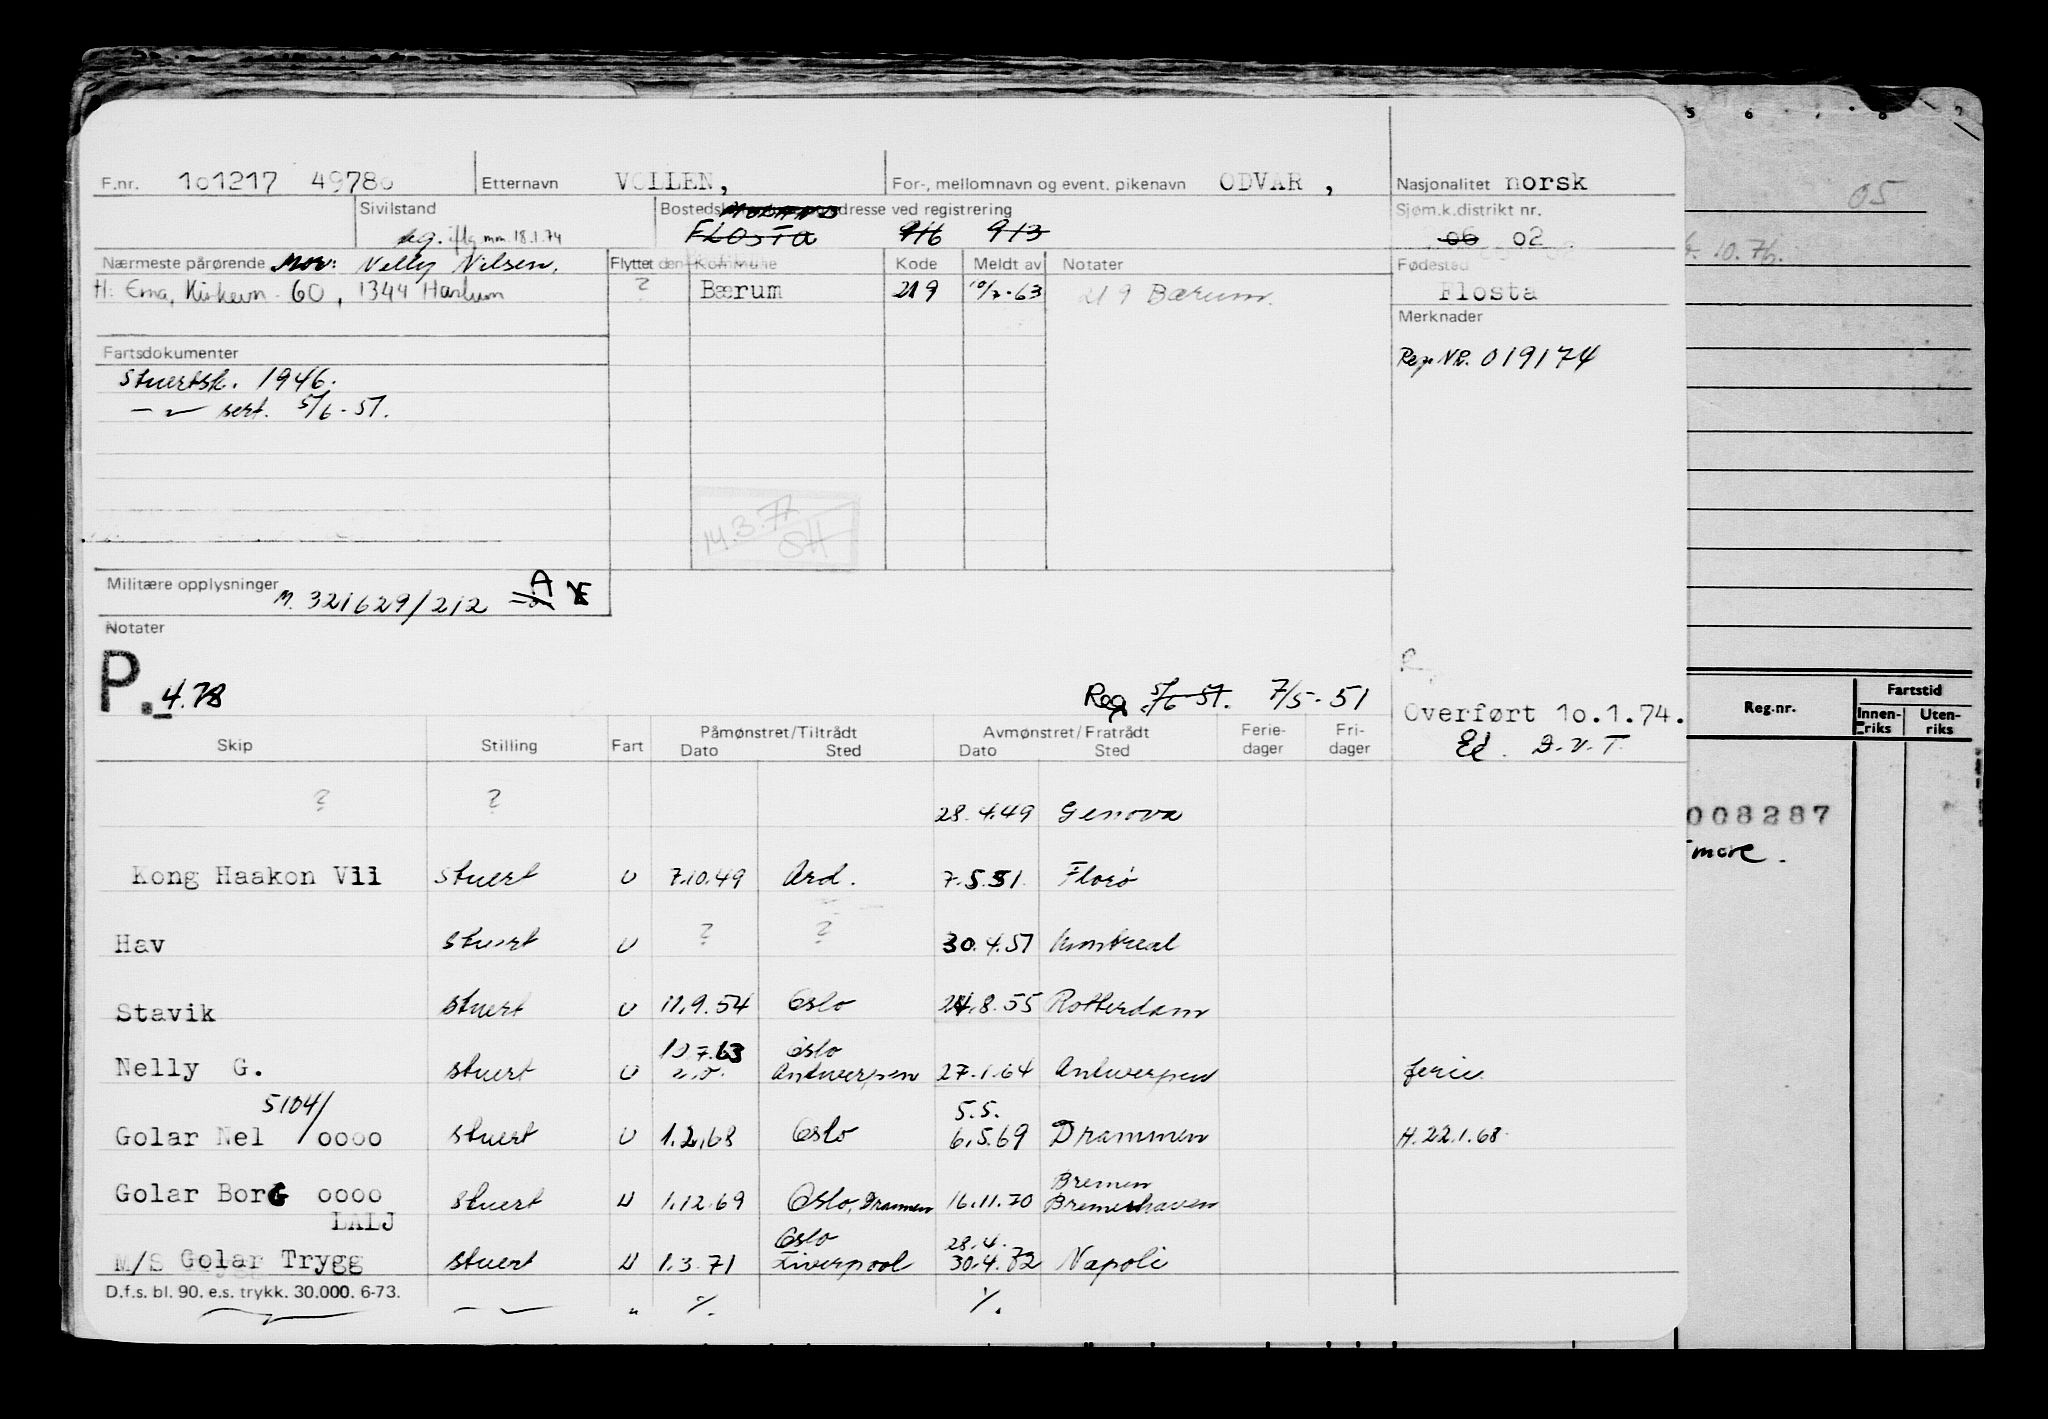 F.nr. 101217 49780 Etternavn VOLLEN, For-, mellomnavn og event. pikenavn ODVAR , Nasjonalitet norsk
Sivilstand Bostedsk adresse ved registrering Sjøm.k.distrikt nr.
ug. iflg mm. 18.1.74 FLOSTA 916 913 06 02
Nærmeste pårørende Mor: Nelly Nilsen. Flyttet den Kommune Kode Meldt av Notater Fødested
H. Erna, Kirkevn. 60, 1344 Haslum ? Bærum 219 10/7-63 219 Bærum. Flosta
Merknader
Fartsdokumenter
Reg NR. 019174
Stuertsk. 1946.
sert. 5/6-51.
14.3.77
SH
Militære opplysninger M. 321629/212 A
Notater
P. 4.78
Reg 5/6-51. 7/5-51
Overført 10.1.74.
Ed. D.V.T.
Skip Stilling Fart Påmønstret/Tiltrådt Dato Sted Avmønstret/Fratrådt Dato Sted Ferie-dager Fri-dager
? ? 28.4.49 Genova
Kong Haakon Vii Stuert U 7.10.49 Ard. 7.5.51. Florø
Hav Stuert U ? ? 30.4.51 Montreal
Stavik Stuert U 11.9.54 Oslo 24.8.55 Rotterdam
10.7.63 Oslo
Nelly G. Stuert U Antwerpen 27.1.64 Antwerpen ferie
5104/ 5.5.
Golar Nel oooo Stuert U 1.2.68 Oslo 6.5.69 Drammen H.22.1.68.
Bremen
Golar BorG oooo Stuert U 1.12.69 Oslo, Drammen 16.11.70 Bremerhaven
LAIJ Oslo 28.4.
M/S Golar Trygg Stuert U 1.3.71 Liverpool 30.4.72 Napoli
D.f.s. bl. 90. e.s. trykk. 30.000. 6-73.
" %. %.
5 6
05
10.76.
Reg.nr. Fartstid
Innen-riks Uten-riks
008287
more.